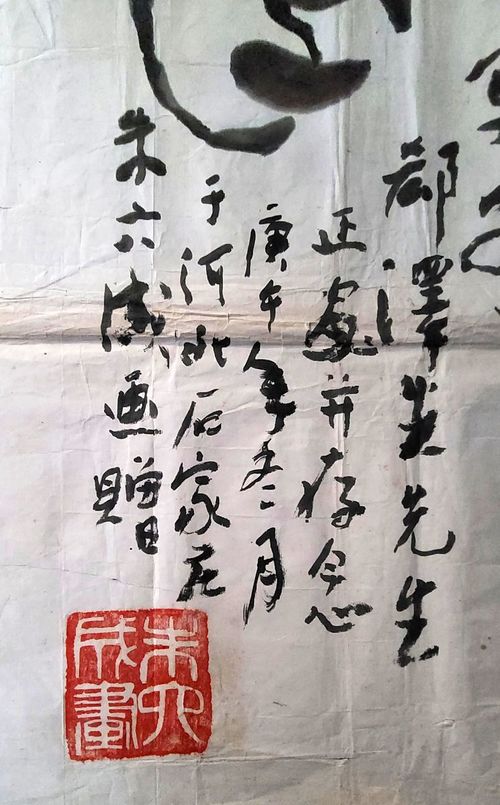 澤先生
正并存念
庚午年冬月
于河北石家庄
朱六成画贈
朱六
成畫